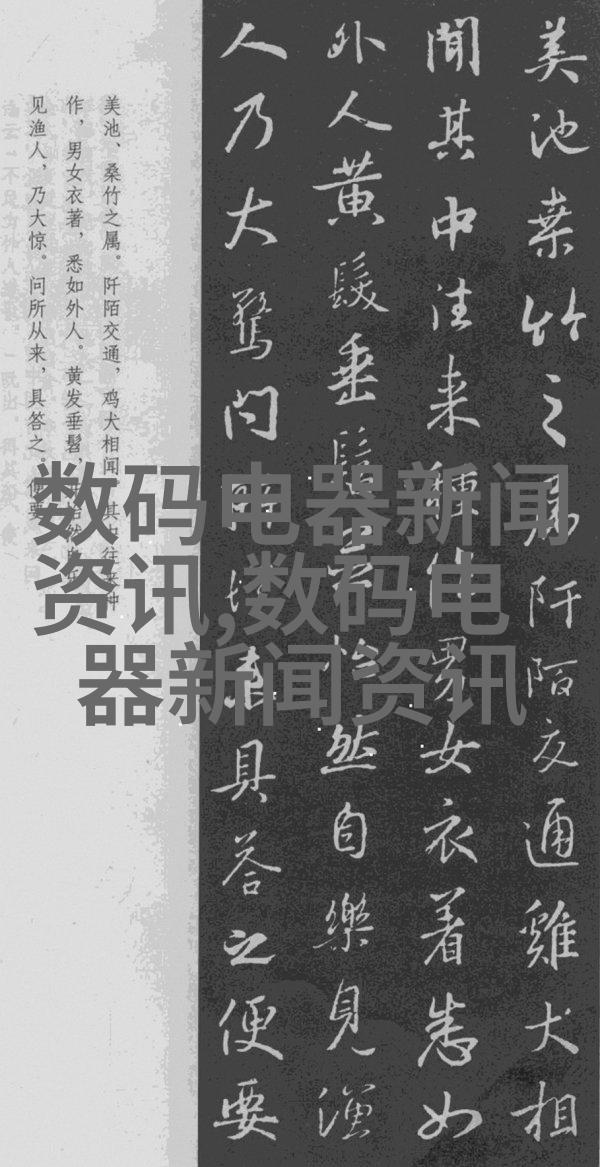 美池桒竹之属阡陌交通雞犬相
聞其中往来種作男女衣着悉如
外人黄髮垂髫並怡然自樂見漁
人乃大驚問所從来具答之便要
美池、桑竹之属。阡陌交通，鸡犬相闻。其中往来种
作，男女衣著，悉如外人。黄发垂髫，并怡然自乐
见渔人，乃大惊。问所从来，具答之。便要
数码电器新闻
资讯,数码电
器新闻资讯